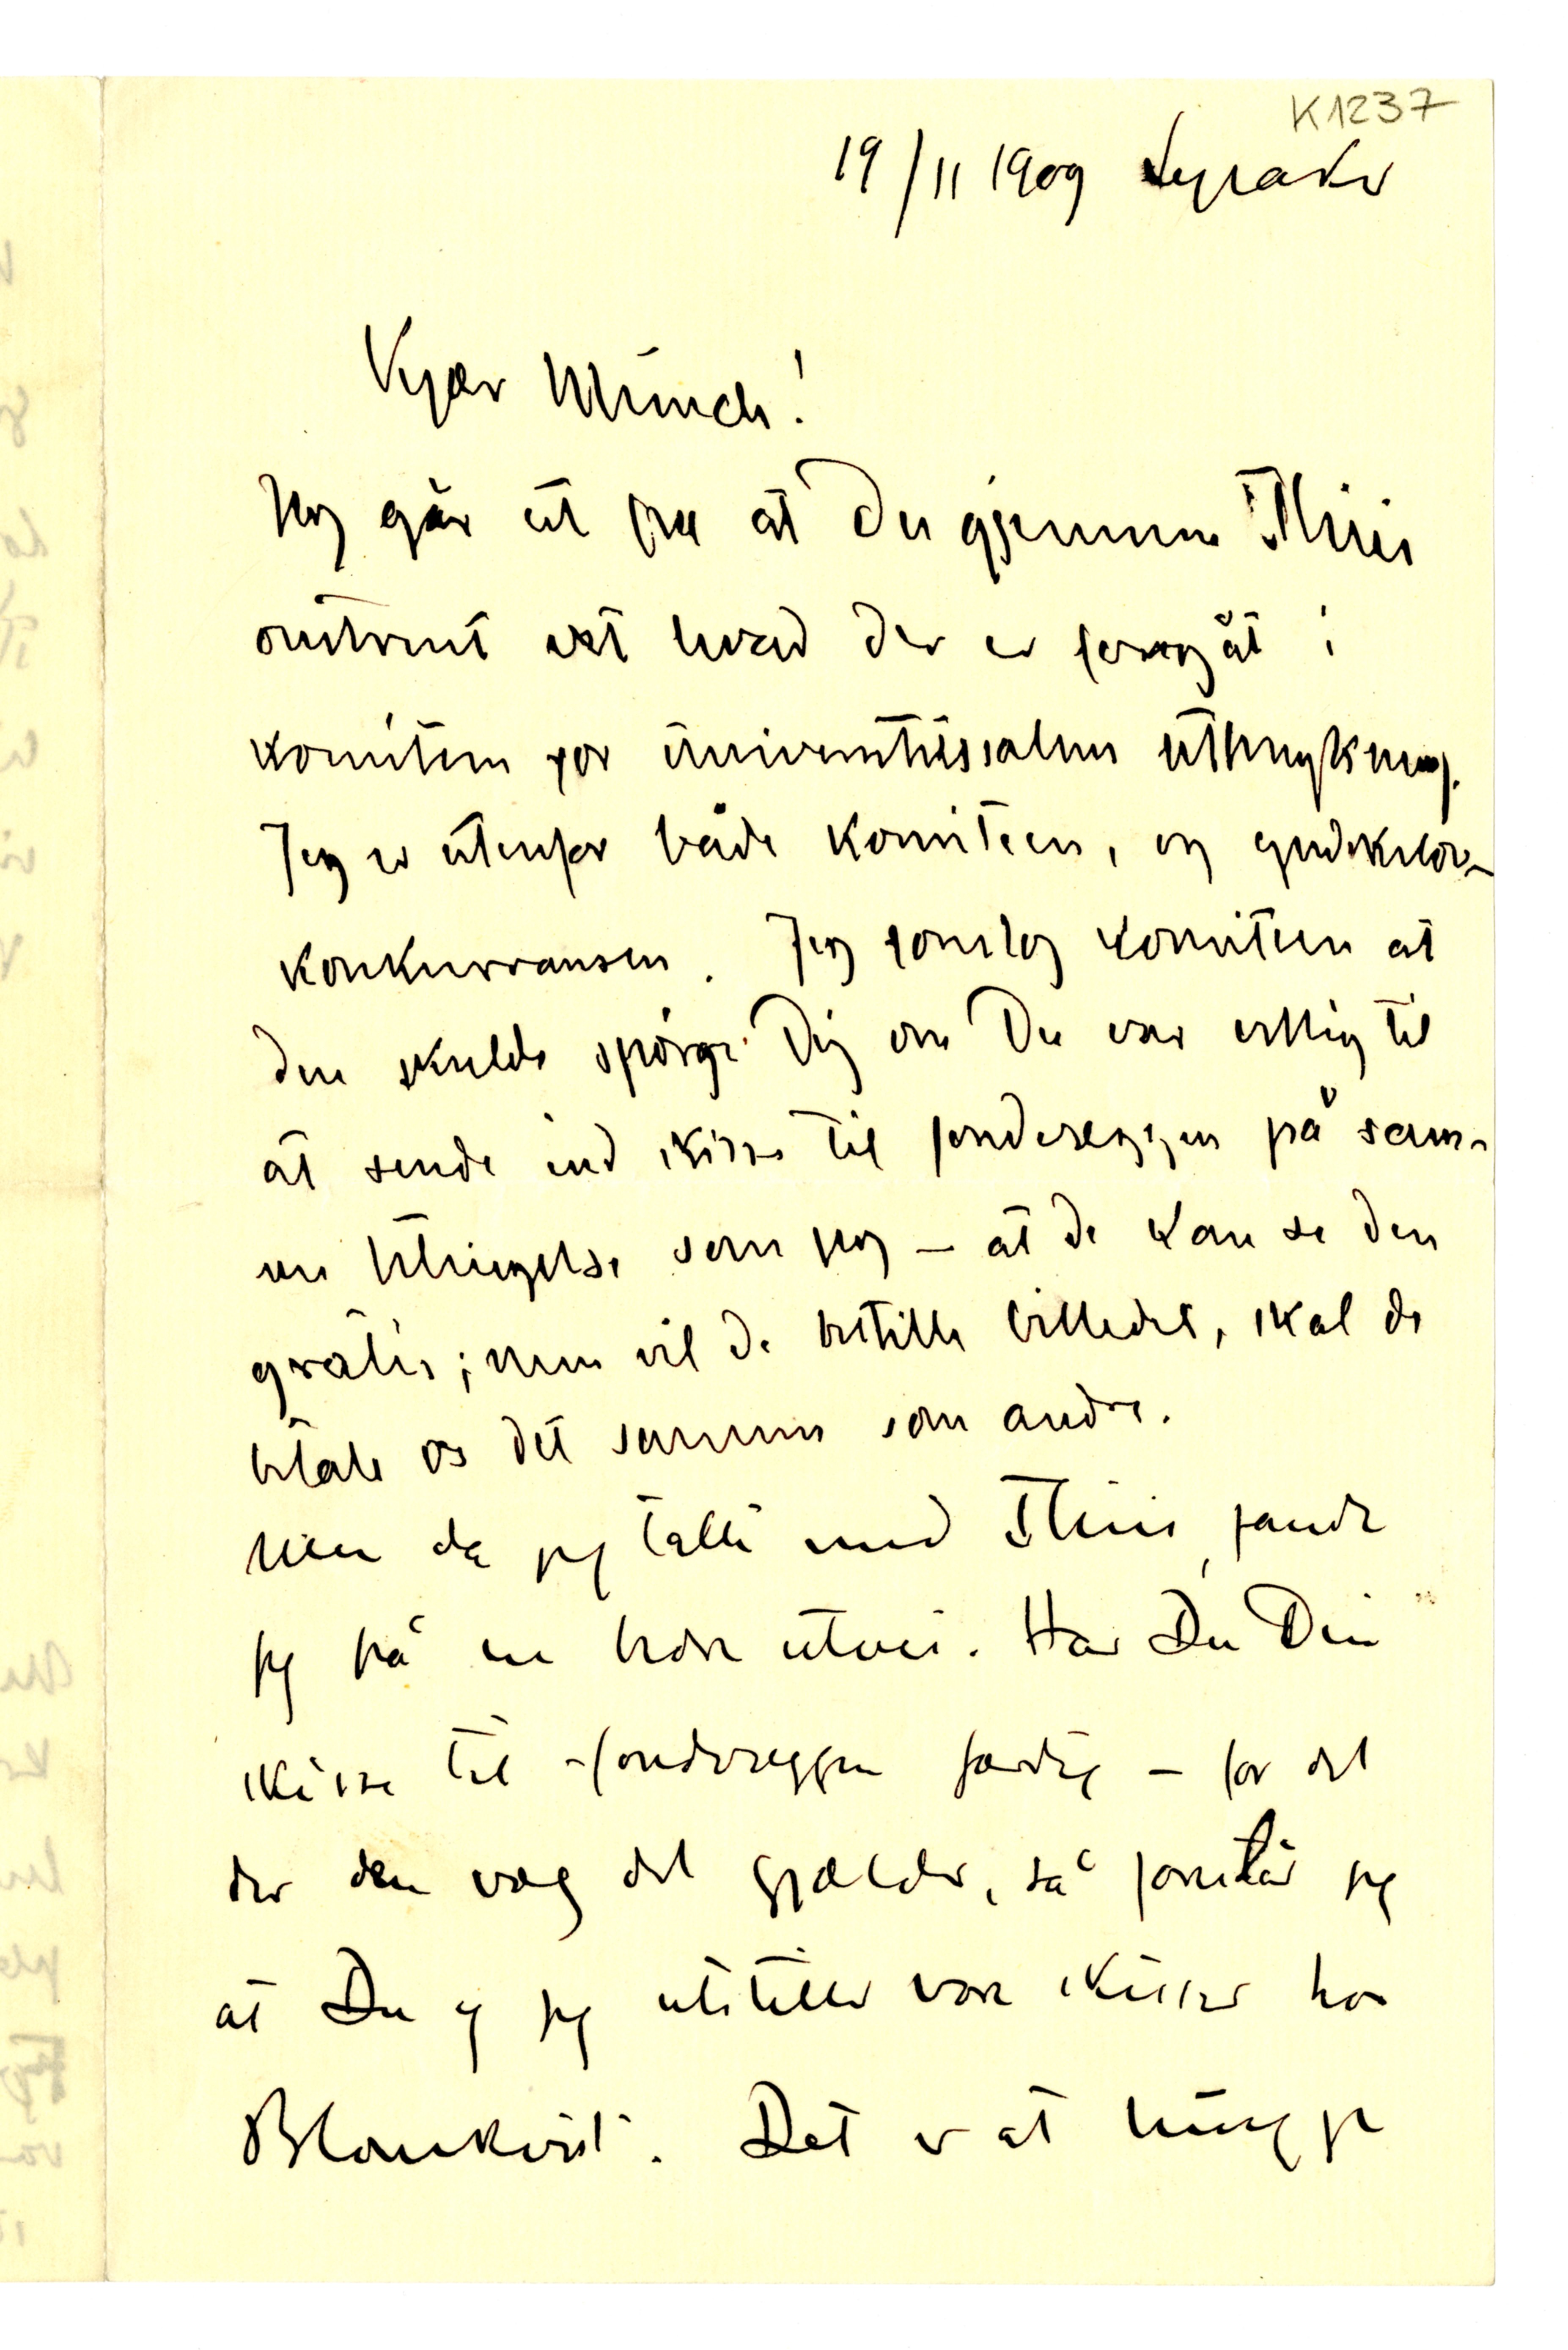 K1237
19/11 1909 Lysaker
Kjær Munch!
Jeg går ut fra at Du gjennem Thiis
omtrent vet hvad der er foregåt i
komiteen for Universitetssalens utsmykning.
Jeg er utenfor både komiteen, og
konkurransen. Jeg foreslog komiteen at
den skulde spørge Dig om Du var villig til
at sende ind skisse til fondvæggen på sam-
me betingelse som jeg – at de kan se den
gratis; men vil de bestille billedet, skal de
betale os det samme som andre.
Men da jeg talte med Thiis, fandt
jeg på en bedre utvei. Har Du Din
skisse til fondvæggen færdig – for det
er den væg det gjælder, så foreslår jeg
at Du og jeg utstiller vore skisser hos
Blomkvist. Det er at